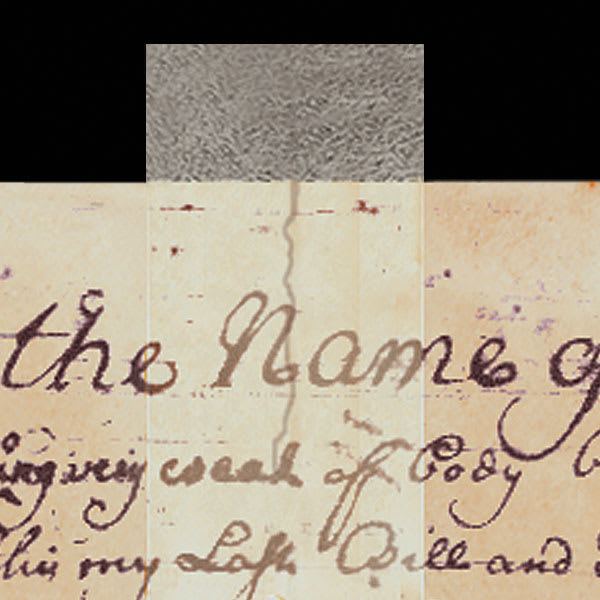 the Name of
ing very weak off Body
this my Last Will and